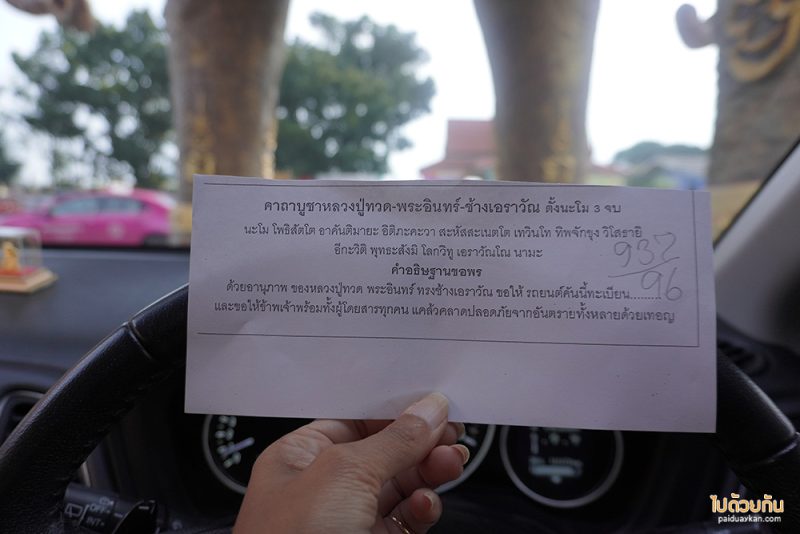 คาถาบูชาหลวงปู่ทวด-พระอินทร์-ช้างเอราวัณ ตั้งนะโม 3 จบ
นะโม โพธิสัตโต อาคันติมายะ อิติภะคะวา สะหัสสะเนตโต เทวินโท ทิพจักขุง วิโสธายิ
อีกะวิติ พุทธะสังมิ โลกวิทู เอราวัณโณ นามะ
คำอธิษฐานขอพร
937
96
ด้วยอานุภาพ ของหลวงปู่ทวด พระอินทร์ ทรงช้างเอราวัณ ขอให้ รถยนต์คันนี้ทะเบียน.........
และขอให้ข้าพเจ้าพร้อมทั้งผู้โดยสารทุกคน แคล้วคลาดปลอดภัยจากอันตรายทั้งหลายด้วยเทอญ
INT
ไปด้วยกัน
paiduaykan.com